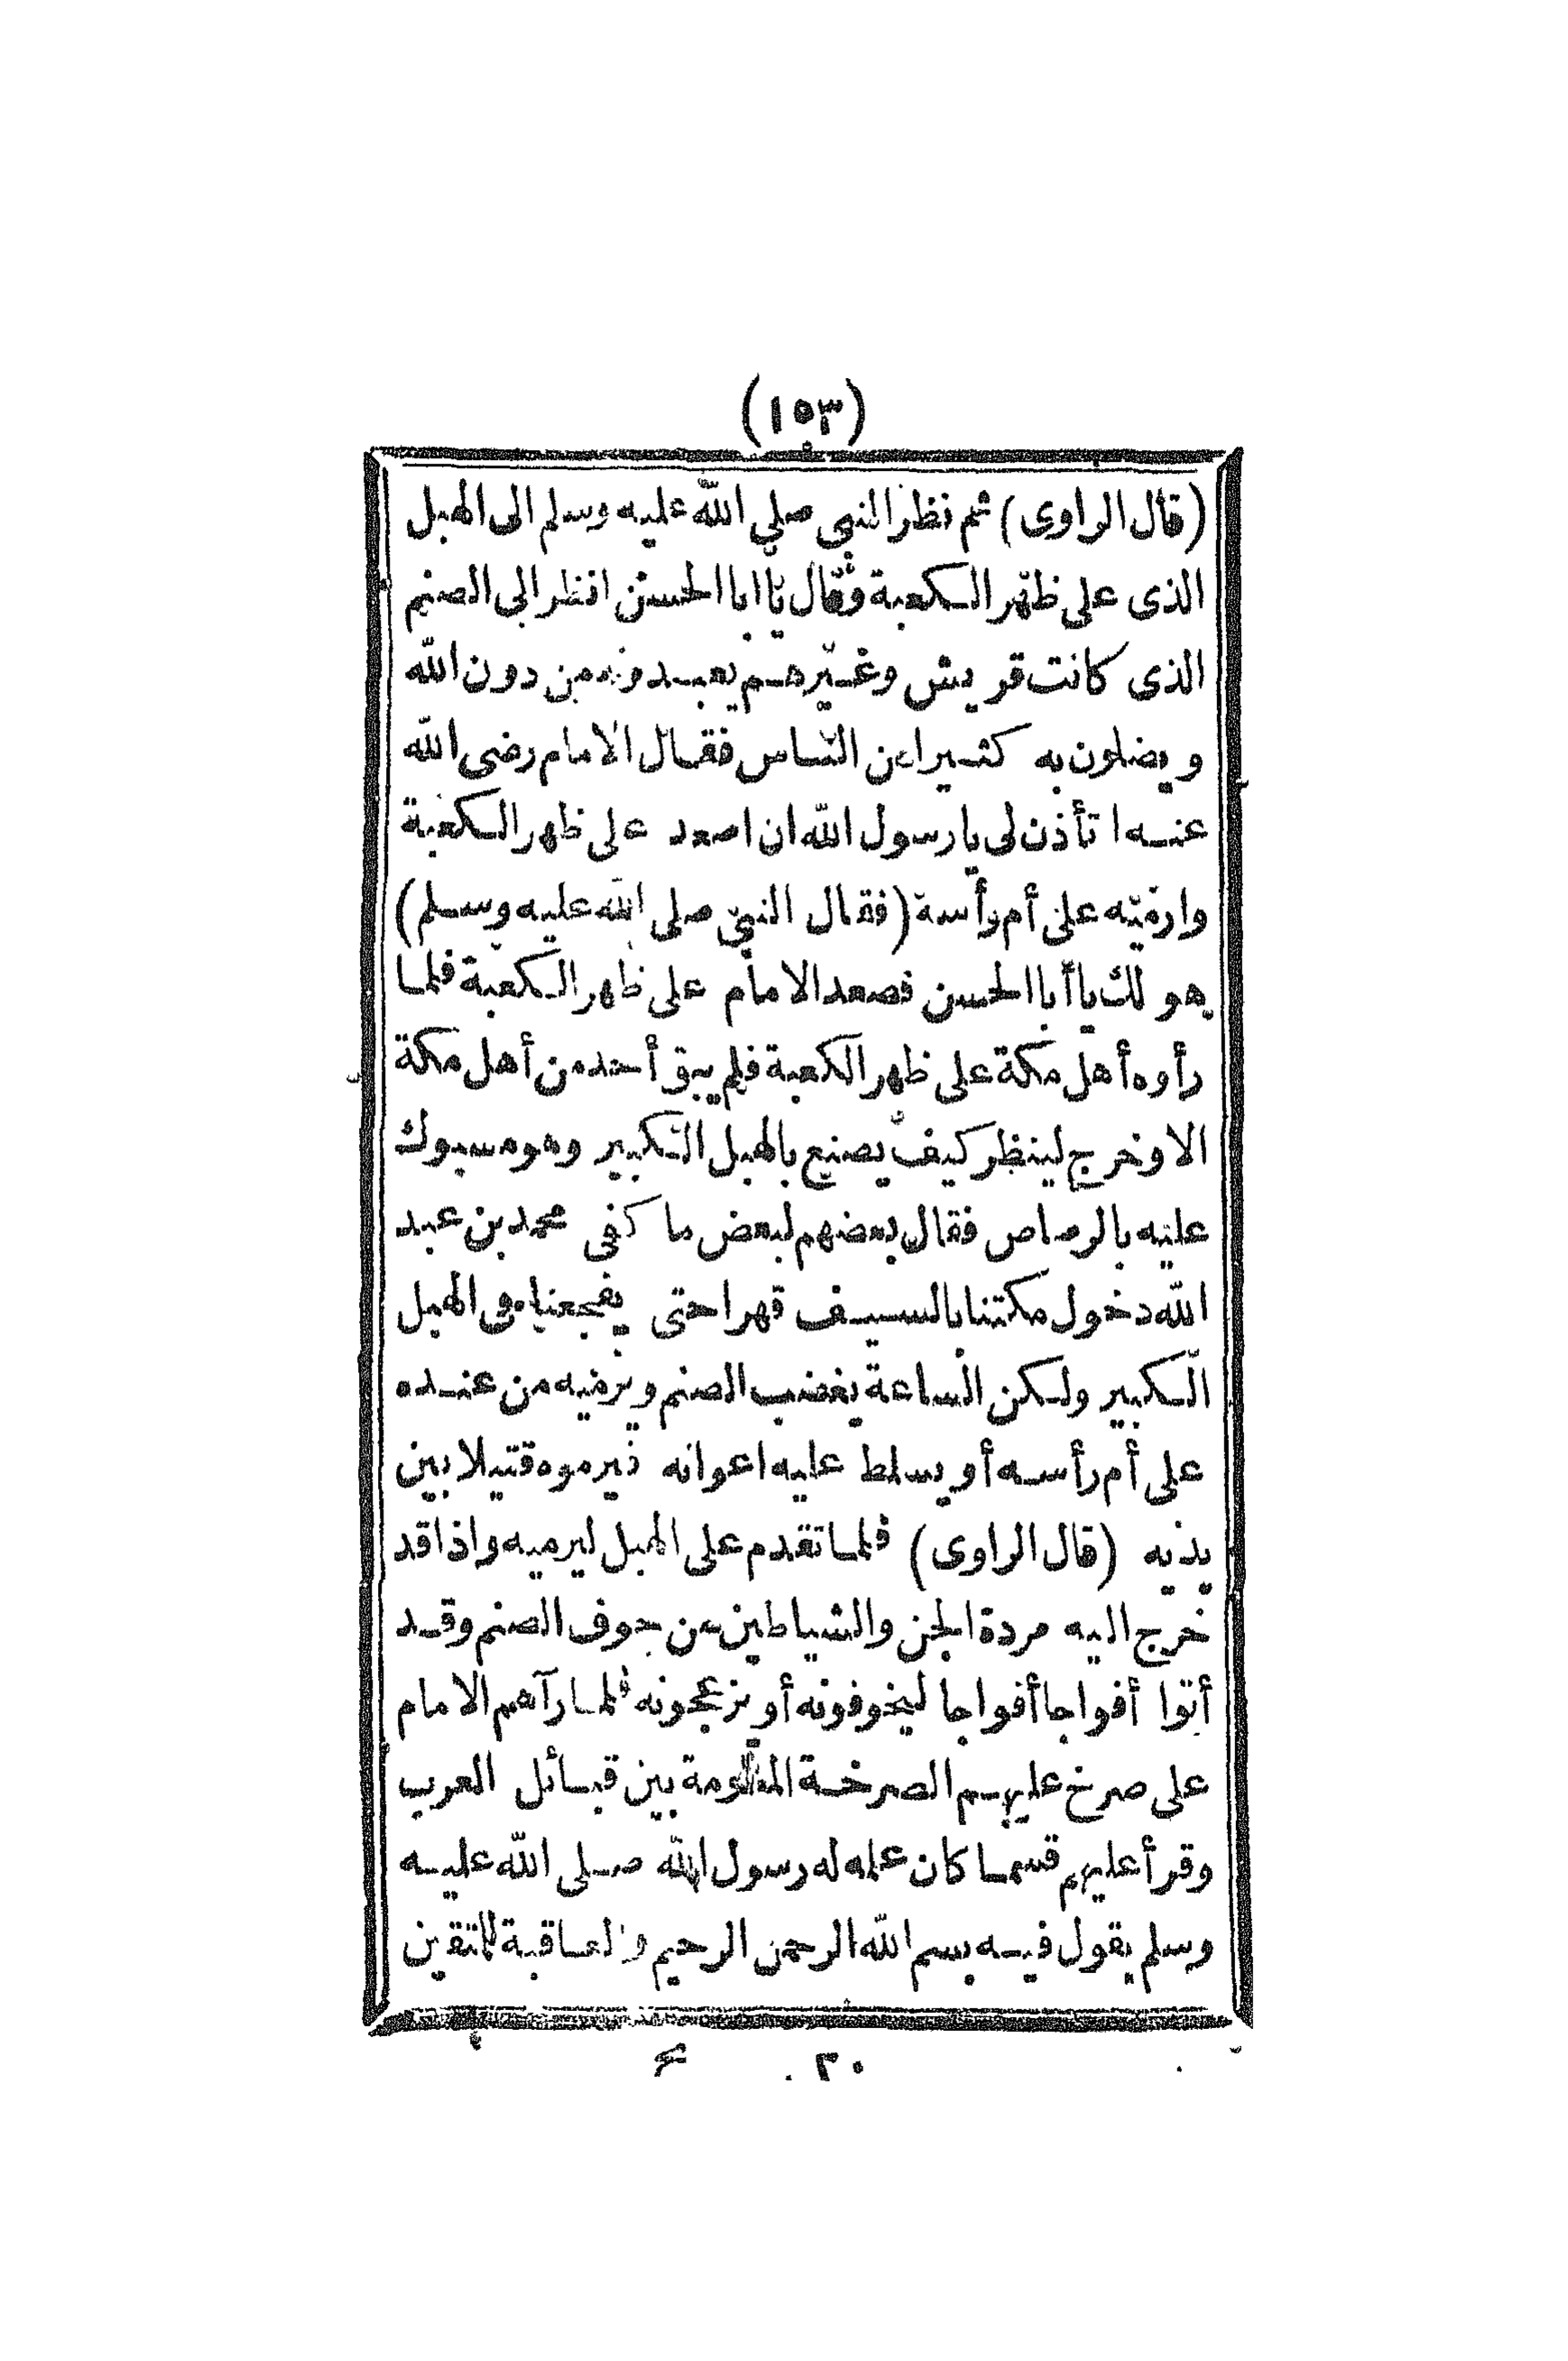 (١٥٣)
(قال الراوى) ثم نظر النبى صلى الله عليه وسلم الى الهبل
الذى على ظهر الكعبة وقال يا ابا الحسن انظر الى الصنم
الذى كانت قريش وغيرهم يعبدونه من دون الله
ويضلون به كثيرا من الناس فقال الامام رضى الله
عنه ا تأذن لى يا رسول الله ان اصعد على ظهر الكعبة
وارميه على أم رأسة (فقال النبى صلى الله عليه وسلم)
هو لك يا أبا الحسن فصعد الامام على ظهر الكعبة فلما
رأوه أهل مكة على ظهر الكعبة فلم يبق أحد من أهل مكة
الا وخرج لينظر كيف يصنع بالهبل الكبير وهو مسبوك
عليه بالرصاص فقال بعضهم لبعض ما كفى محمد بن عبد
الله دخول مكتنا بالسيف قهرا حتى يفجعنا فى الهبل
الكبير ولكن الساعة يغضب الصنم ويرميه من عنده
على أم رأسه أو يسلط عليه اعوانه فيرموه قتيلا بين
يديه (قال الراوى) فلما تقدم على الهبل ليرميه واذا قد
خرج اليه مردة الجن والشياطين من جوف الصنم وقد
أتوا أفواجا أفواجا ليخوفونه أو يزعجونه فلما رآهم الامام
على صرخ عليهم الصرخة المعلومة بين قبائل العرب
وقرأ عليهم قسما كان علمه له رسول الله صلى الله عليه
وسلم يقول فيه بسم الله الرحمن الرحيم والعاقبة للمتقين
٢٠ ع